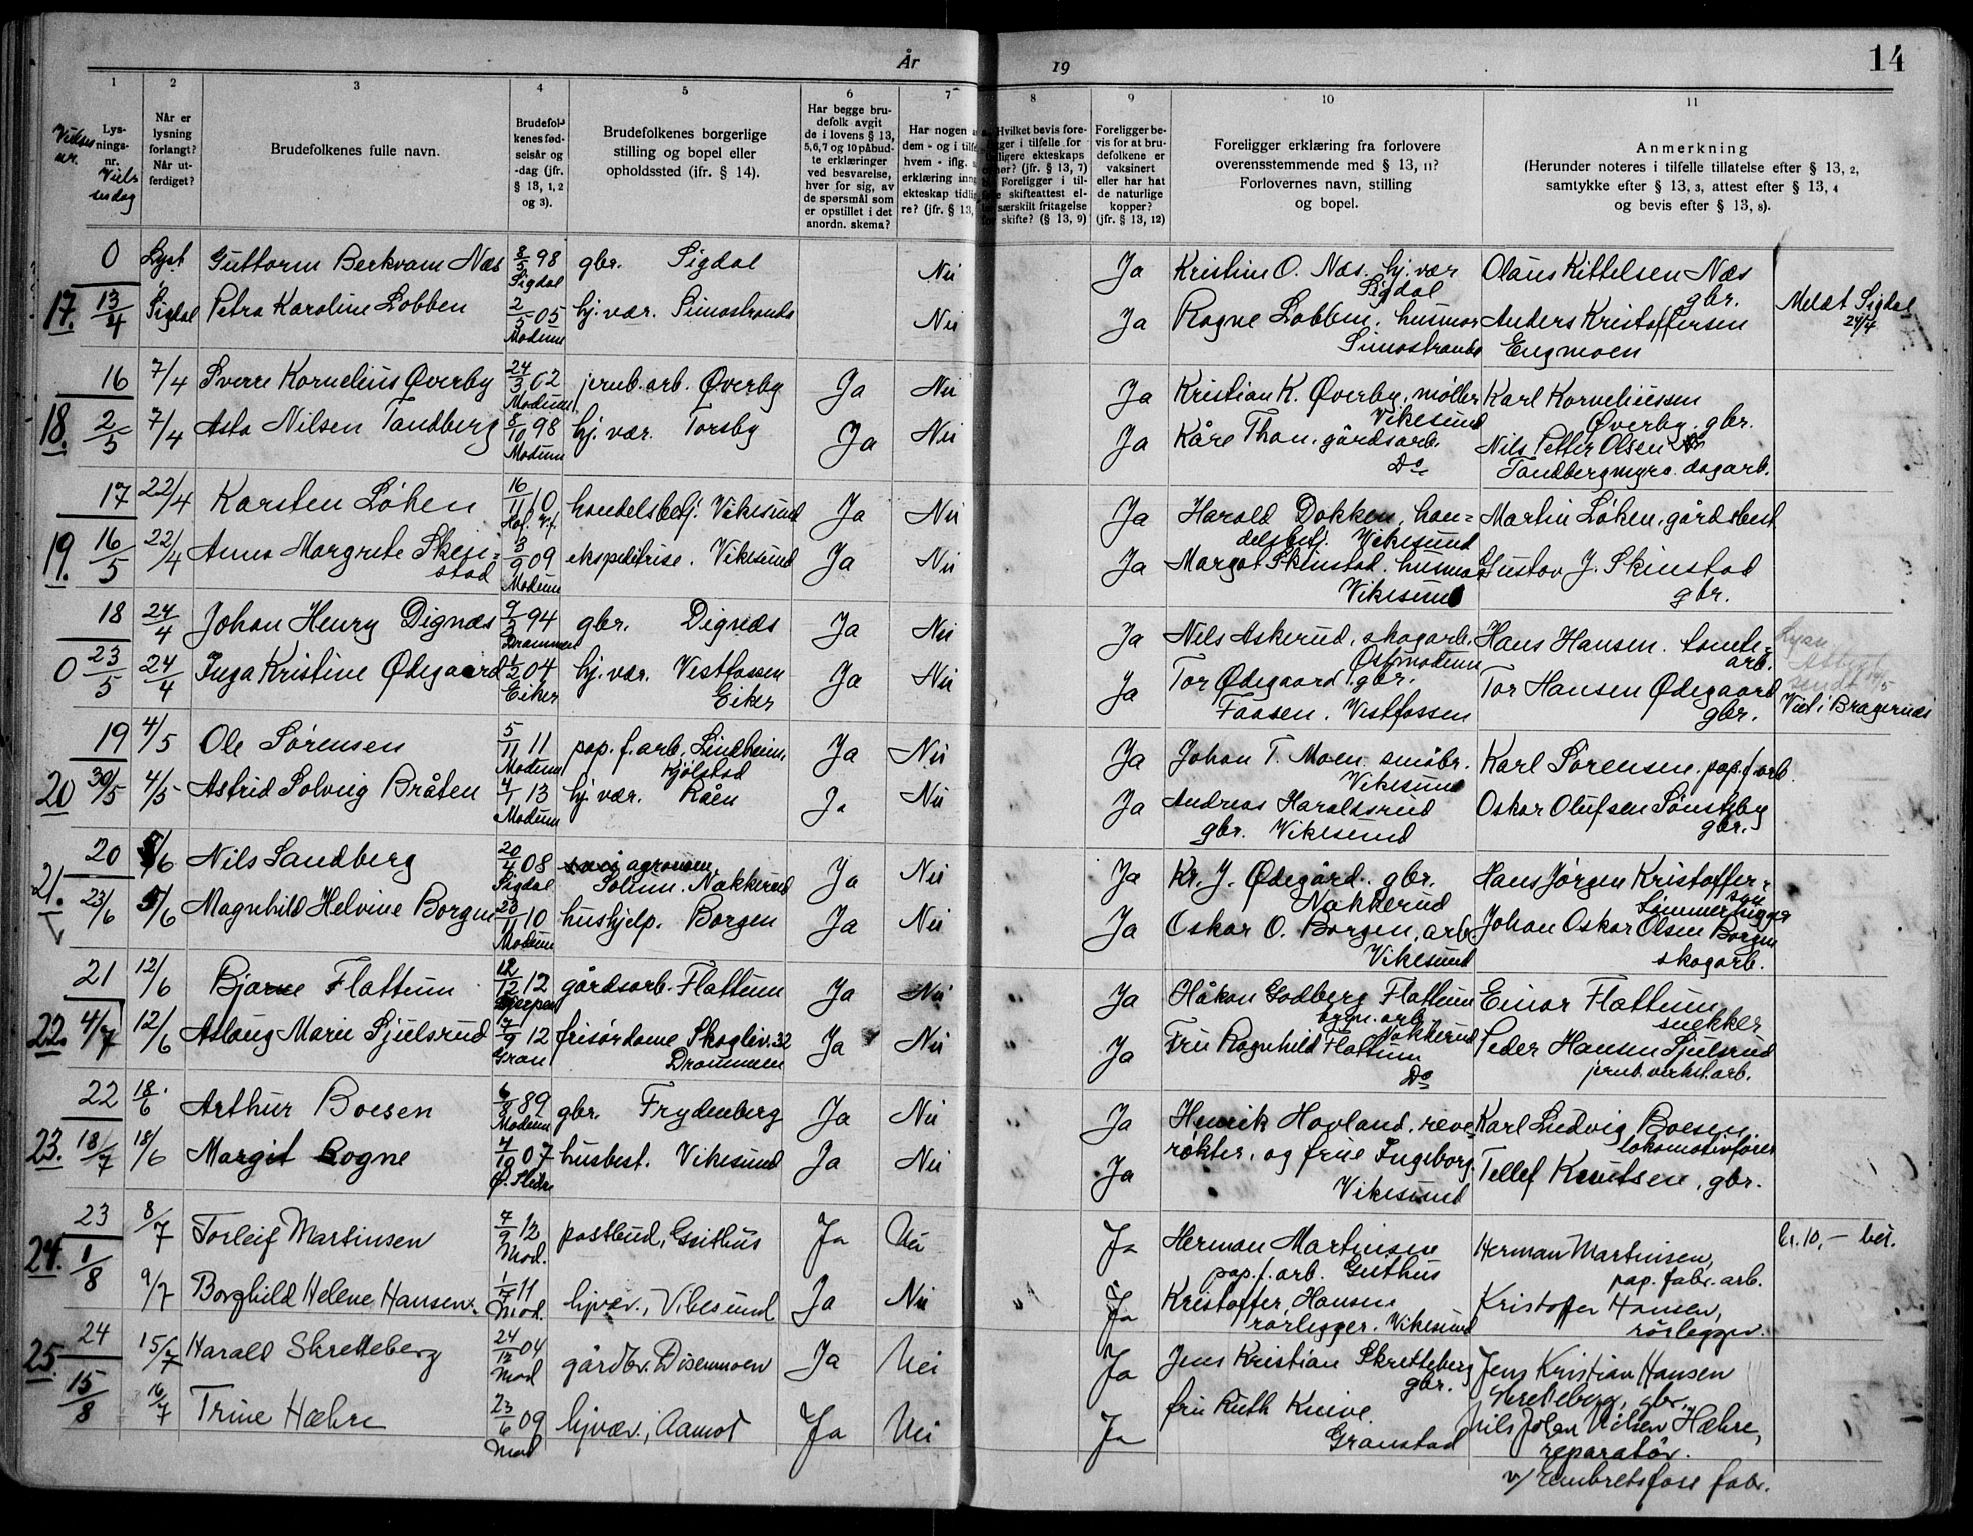 År
19
14
1
2
3
4
5
6
7
8
9
10
11
Vielses nr.
Lysningsnr.
Vielsesdag
Når er lysning forlangt? Når utferdiget?
Brudefolkenes fulle navn.
Brudefolkenes fødselsår og -dag (jfr. § 13, 1, 2 og 3).
Brudefolkenes borgerlige stilling og bopel eller opholdssted (jfr. § 14).
Har begge brudefolk avgit de i lovens § 13, 5, 6, 7 og 10 påbudte erklæringer ved besvarelse, hver for sig, av de spørsmål som er opstillet i det anordn. skema?
Har nogen
dem - og i tilf
hvem - iflg.
erklæring inng
ekteskap tidlig
re? (jfr. § 13,
Hvilket bevis fore-
gger i tilfelle for
dligere ekteskaps
hør? (jfr. § 13, 7)
Foreligger i til-
skifteattest el-
særskilt fritagelse
skifte? (§ 13, 9)
Foreligger bevis for at brudefolkene er vaksinert eller har hat de naturlige kopper? (jfr. § 13, 12)
Foreligger erklæring fra forlovere overensstemmende med § 13, 11? Forlovernes navn, stilling og bopel.
Anmerkning
(Herunder noteres i tilfelle tillatelse efter § 13, 2, samtykke efter § 13, 3, attest efter § 13, 4 og bevis efter § 13, 8).
0 Lyst Guttorm Berkvam Næs 8/5 98 Sigdal gbr. Sigdal Nei Ja Kristine O. Næs. hj. vær Sigdal Olaus Kittelsen Næs gbr.
17. 13/4 Sigdal Petra Karoline Lobben 2/5 05 Modum hj. vær. Simostranda Nei Ja Ragne Lobben. husmor Simostranda Anders Kristoffersen Engmoen Meldt Sigdal 24/4
16 7/4 Sverre Kornelius Øverby 24/3 02 Modum jernb. arb. Øverby Ja Nei Ja Kristian K. Øverby, møller Vikesund Karl Korneliussen Øverby, gbr.
18. 2/5 7/4 Asta Nilsen Tandberg 8/10 98 Modum hj. vær. Torsby Ja Nei Ja Kåre Thon, gårdsarb. Do Nils Petter Olsen Tandbergmyra. dagarb.
17 22/4 Karsten Løken 16/11 10 Hof. Vf. handelsbetj. Vikesund Ja Nei Ja Harald Dokken, handelsbetj. Vikesund Martin Løken, gårdsbest
19. 16/5 22/4 Anna Margrete Skinstad 3/9 09 Modum ekspeditrise. Vikesund Ja Nei Ja Margot Skinstad. husmor Vikesund Gustav J. Skinstad gbr.
18 24/4 Johan Henry Dignæs 9/2 94 Drammen gbr. Dignæs Ja Nei Ja Nils Askerud, skogarb. Østmodum Hans Hansen. tomtearb.
0 23/5 24/4 Inga Kristine Ødegaard 04 Eiker hj. vær. Vestfossen Eiker Ja Nei Ja Tor Ødegaard, gbr. Faasen. Vestfossen Tor Hansen Ødegaard gbr. Viet i Bragernæs
19 4/5 Ole Sørensen 5/11 11 Modum pap. f. arb. Lindheim, Kjølstad Ja Nei Ja Johan T. Moen. småbr. Vikesund Karl Sørensen. pap. f. arb.
20 30/5 4/5 Astrid Solveig Bråten 4/1 13 Modum hj. vær. Råen Ja Nei Ja Andreas Haraldsrud gbr. Vikesund Oskar Olufsen Sønsteby gbr.
20 5/6 Nils Sandberg 20/4 08 Sigdal agronom Solum. Nakkerud Ja Nei Ja Kr. J. Ødegård. gbr. Nakkerud Hans Jørgen Kristoffersen
21. 23/6 5/6 Magnhild Helvine Borgen 23/11 10 Modum hushjelp. Borgen Ja Nei Ja Oskar O. Borgen, arb. Vikesund Johan Oskar Olsen Borgen skogarb.
21 12/6 Bjarne Flattum 12/12 12 gårdsarb. Flattum Ja Nei Ja Håkon Godberg Flattum Nakkerud Einar Flattum snekker
22. 4/7 12/6 Aslaug Marie Sjulsrud 7/9 12 Gran frisørdame Skogliv. 32 Drammen Ja Nei Ja Fru Ragnhild Flattum Do Peder Hansen Sjulsrud jernb. verkst. arb.
22 18/6 Arthur Boesen 6/3 89 Modum gbr. Frydenberg Ja Nei Ja Henrik Hovland. reverøkter, og frue Ingeborg. Vikesund Karl Ludvig Boesen, lokomotivfører
23. 18/7 18/6 Margit Rogne 4/10 07 Ø. Slidre husbest. Vikesund Ja Nei Ja Tellef Knutsen, gbr.
23 8/7 Torleif Martinsen 7/9 12 Mod. postbud, Geithus Ja Nei Ja Herman Martinsen pap. f. arb. Geithus Herman Martinsen, pap. fabr. arb. kr. 10,- bet.
24. 1/8 9/7 Borghild Helene Hansen 1/7 11 Mod. hjvær., Vikesund Ja Nei Ja Kristoffer Hansen rørlegger. Vikesund Kristoffer Hansen, rørlegger.
24 15/7 Harald Skretteberg 24/12 04 Mod gårdbr. Disenmoen Ja Nei Ja Jens Kristian Skretteberg gbr. Jens Kristian Hansen Skretteberg, gbr.
25. 15/8 16/7 Trine Hæhre 23/6 09 Mod hjvær., Aamot Ja Nei Ja fru Ruth Knive. Granstad Nils Johan Nilsen Hæhre, reparatør. v/ Embretsfoss fabr.